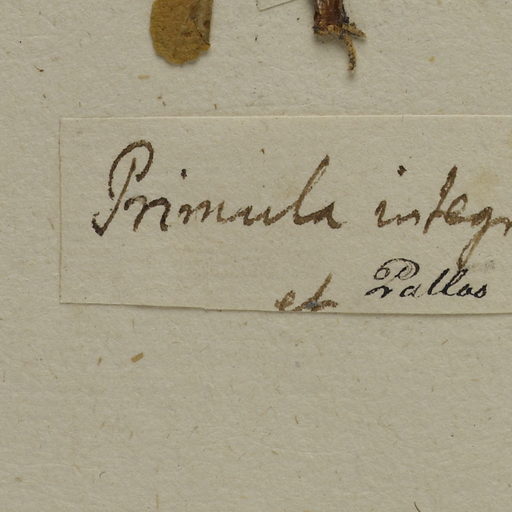 Primula integr
et Pallas